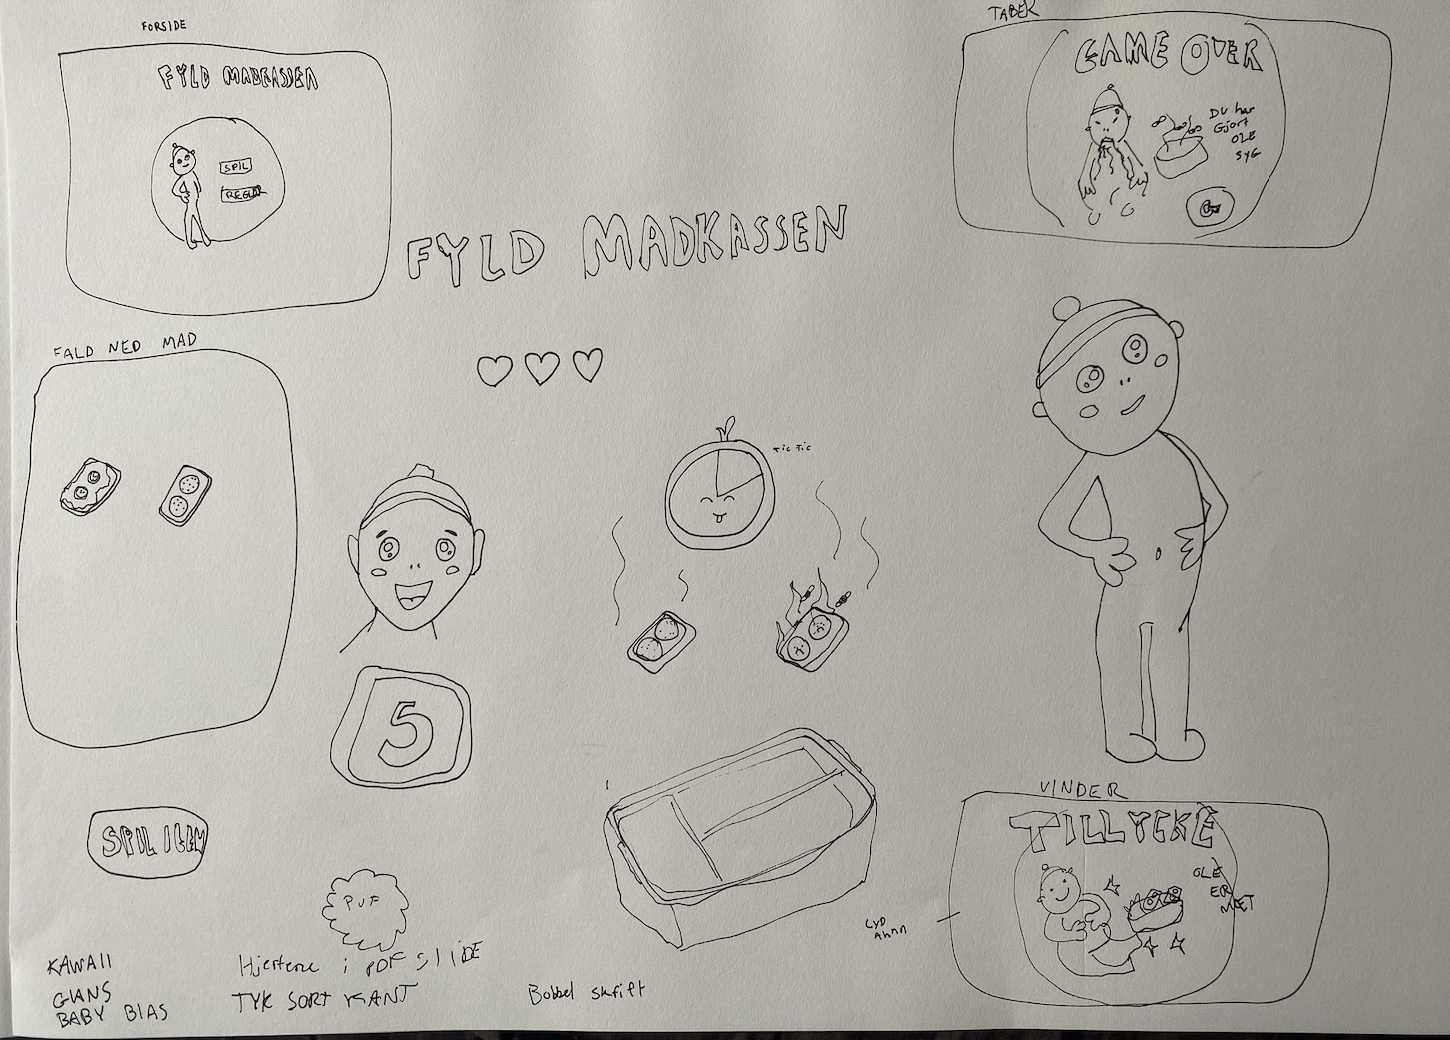 FORSIDE
FYLD MADKASSEN
SPIL
REGLER
TABER
GAME OVER
DU har
Gjort
OLE
SYG
FYLD MADKASSEN
FALD NED MAD
Tic Tic
5
SPIL IGEN
PUF
VINDER
TILLYKKE
OLE
ER
MÆT
LYD
Ahhh
KAWAII
GLANS
BABY BIAS
Hjerterne i PDF SlIDE
TYK SORT KANT
Bobbel skrift